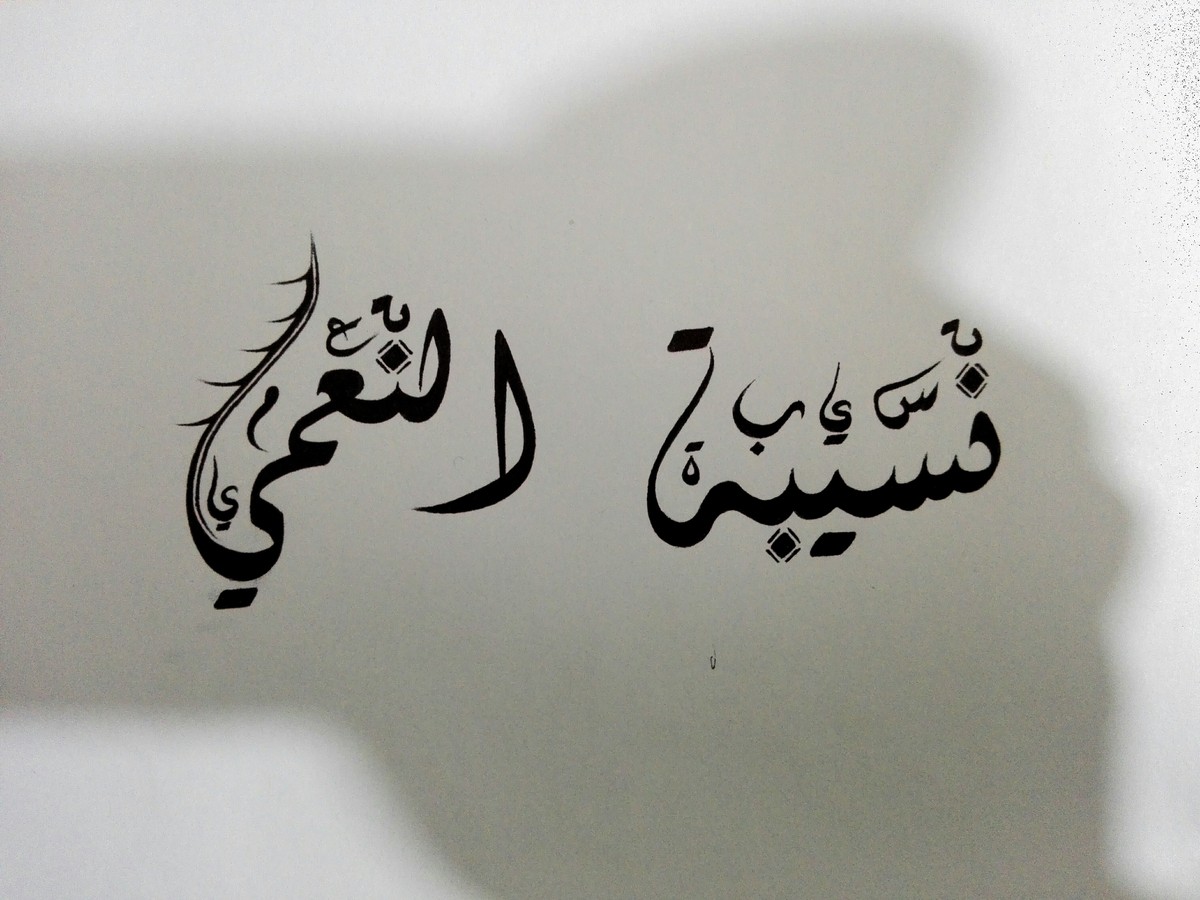 نسيبة النعمي